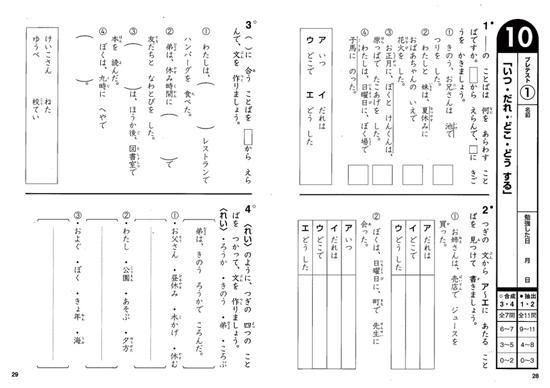 10
プレテスト①
「いつ・だれ・どこ・どう する」
名前
勉強した日 月 日
●抽出 1・2 全11問 9~11 4~8 0~3
○合成 3・4 全7問 6~7 3~5 0~2
1 ――の ことばは 何を あらわす こと
ばですか。□から えらんで、□に きご
うを かきましょう。
① きのう、お兄さんは 池で
つりを した。
② わたしと 妹は、夏休みに
おばあちゃんの いえで
花火を した。
③ お正月に、ぼくと けんくんは、
原っぱで たこあげを した。
④ わたしは、日曜日に、ぼく場で
子馬に のった。
ア いつ イ だれは
ウ どこで エ どうした
2 つぎの 文から ア~エに あたる こと
ばを 見つけて 書きましょう。
① お姉さんは、売店で ジュースを
買った。
ア だれは
イ どこで
ウ どうした
② ぼくは、日曜日に、町で 先生に
会った。
ア いつ
イ だれは
ウ どこで
エ どうした
28
3 ( )に 合う ことばを □から えら
んで、文を 作りましょう。
① わたしは、( )レストランで
ハンバーグを 食べた。
② 弟は、休み時間に( )で
友だちと なわとびを した。
③ ( )は、ほうか後、図書室で
本を 読んだ。
④ ぼくは、九時に へやで
( )。
けいこさん ねた
ゆうべ 校てい
4 〈れい〉のように、つぎの 四つの こと
ばを つかって、文を 作りましょう。
〈れい〉・ろうか ・きのう ・弟 ・ころぶ
弟は、きのう ろうかで ころんだ。
① ・お父さん ・昼休み ・木かげ ・休む
② ・わたし ・公園 ・あそぶ ・夕方
③ ・およぐ ・ぼく ・きょ年 ・海
29